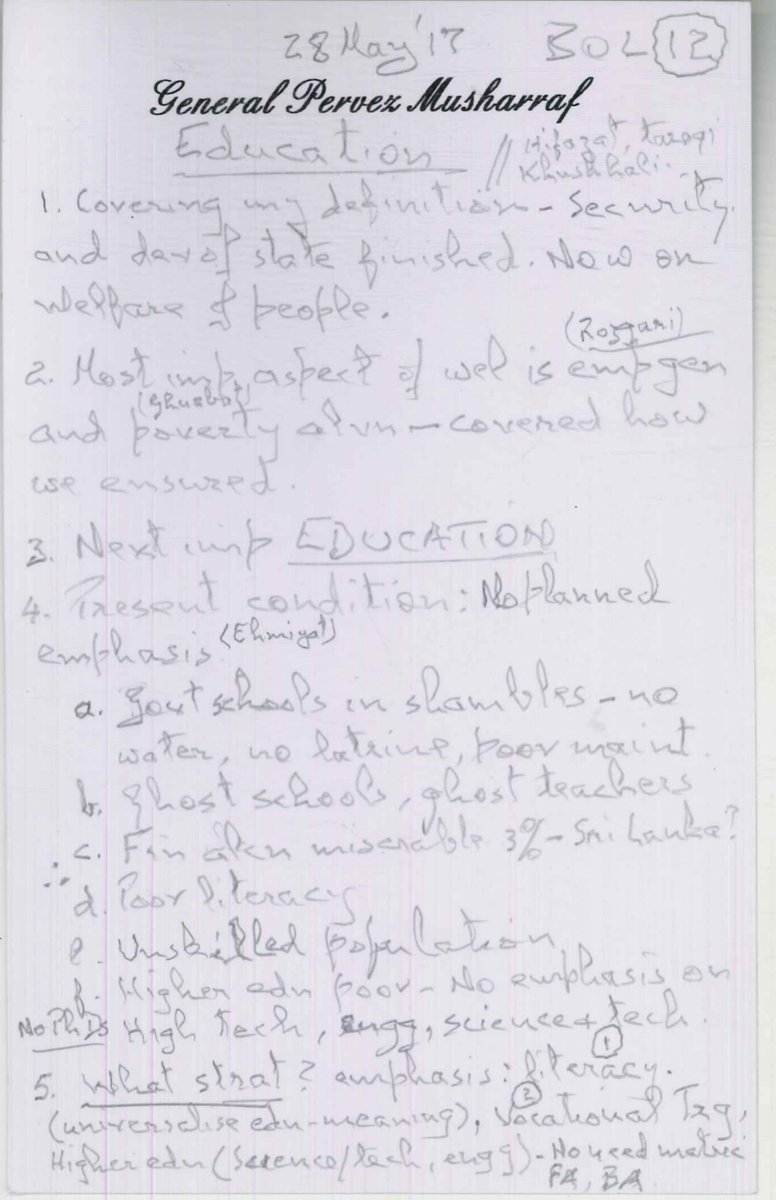 28 May '17 BOL 12
General Pervez Musharraf
Education // Hifazat, taraqi
Khushhali.
1. Covering my definition - Security
and dev of state finished. Now on
welfare of people.
(Rozgari)
2. Most imp aspect of wel is emp gen
(Ghurbat)
and poverty alvn - covered how
we ensured.
3. Next imp EDUCATION
4. Present condition: No planned
emphasis (Ehmiyat)
a. Govt schools in shambles - no
water, no latrine, poor maint.
b. Ghost schools, ghost teachers
c. Fin alcn miserable 3% - Sri Lanka?
∴ d. Poor literacy
e. Unskilled population
f. Higher edn poor - No emphasis on
No PhDs High tech, engg, science & tech.
5. What strat? emphasis: literacy. 1
(universalise edn - meaning), 2 Vocational Trg,
Higher edn (Science/tech, engg) - No need matric
FA, BA